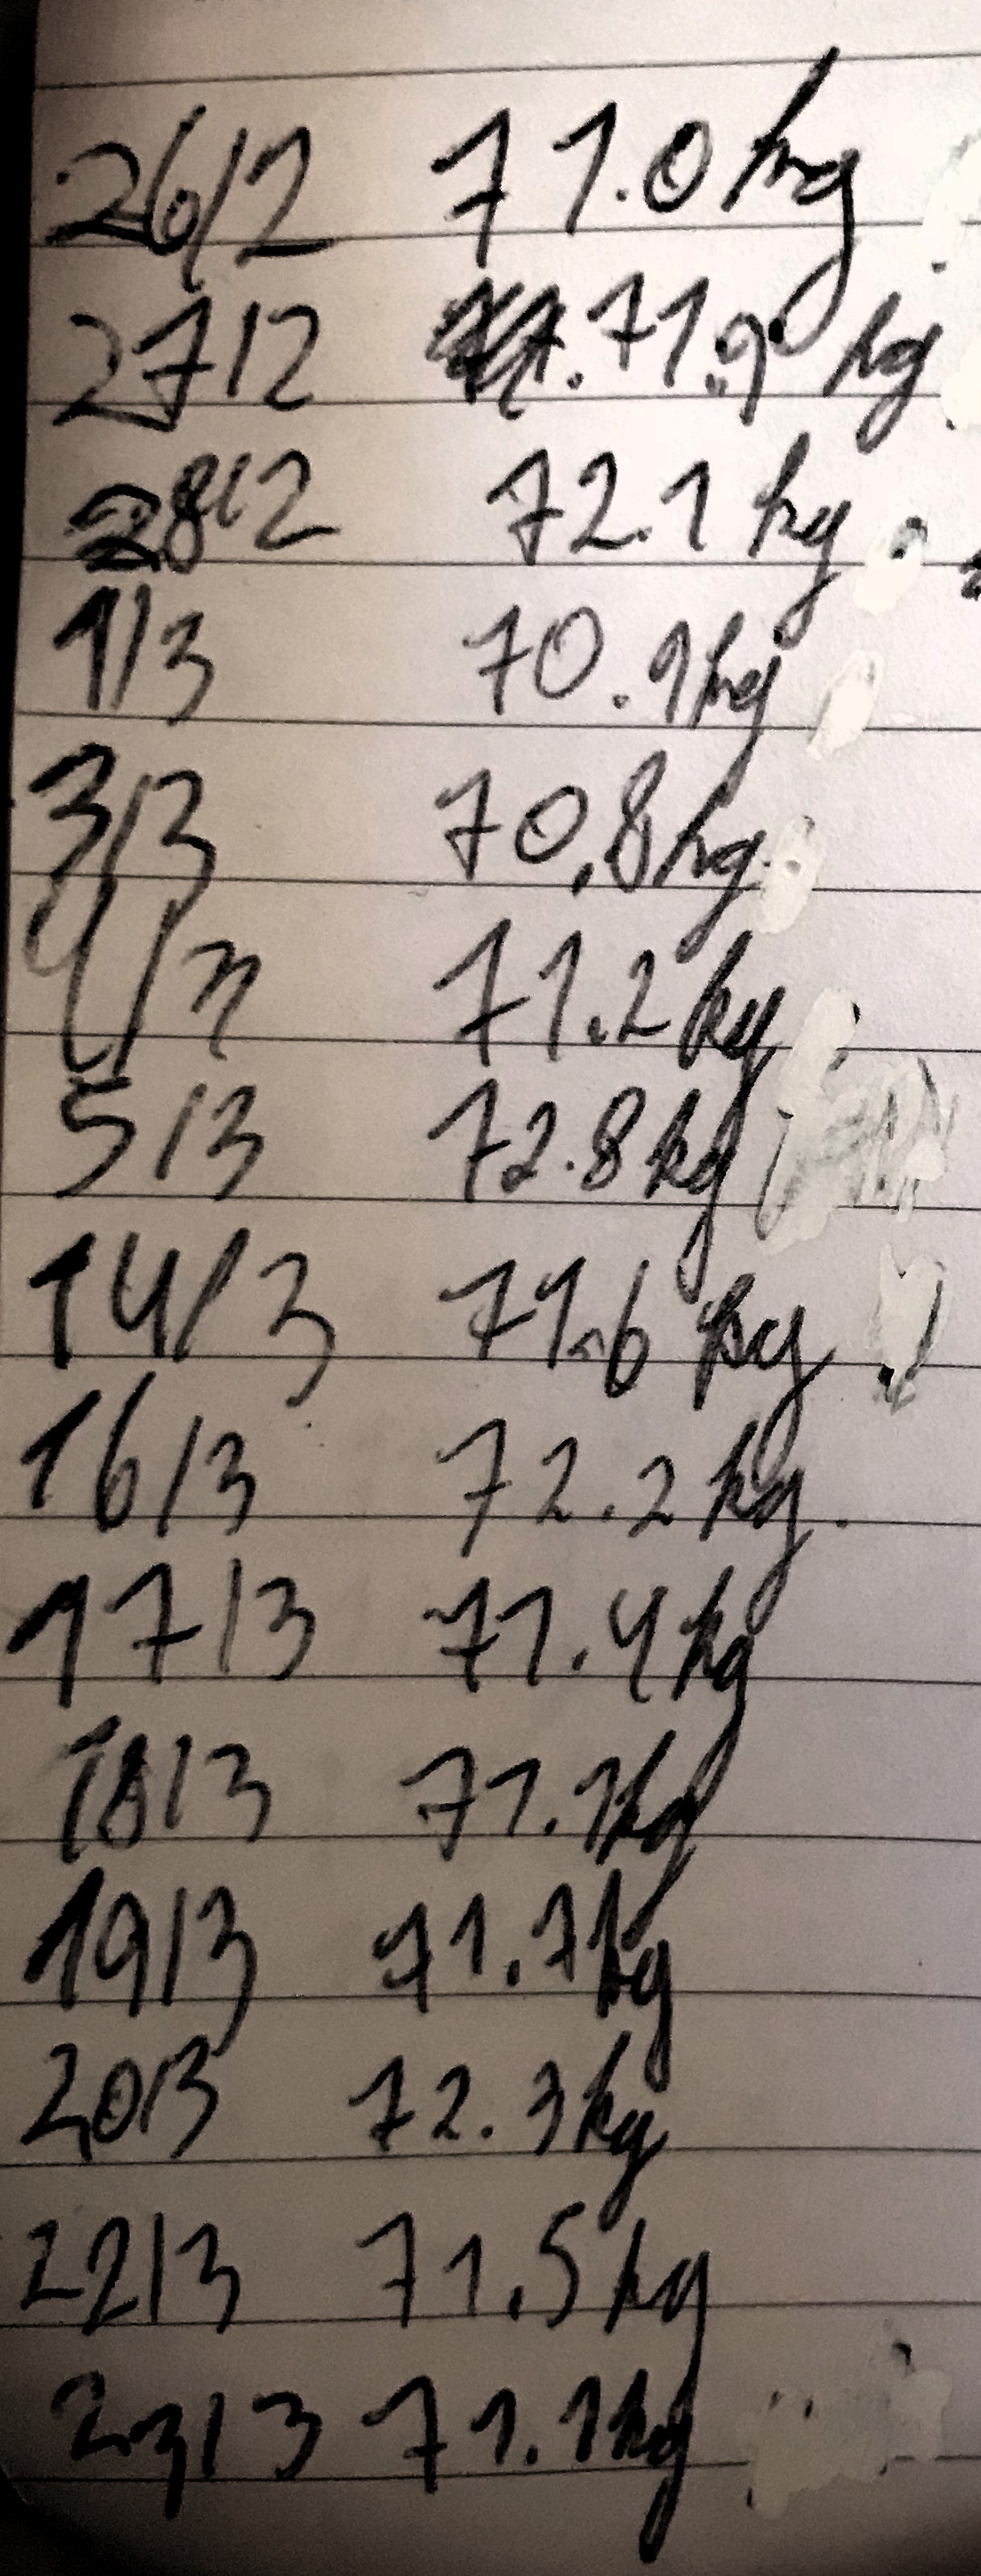 26/2 71.0 kg
27/2 71.9 kg
28/2 72.1 kg
1/3 70.9 kg
3/3 70,8 kg
4/3 71.2 kg
5/3 72.8 kg
14/3 71.6 kg
16/3 72.2 kg.
17/3 71.4 kg
18/3 71.1 kg
19/3 71.7 kg
20/3 72.3 kg
22/3 71.5 kg
23/3 71.1 kg